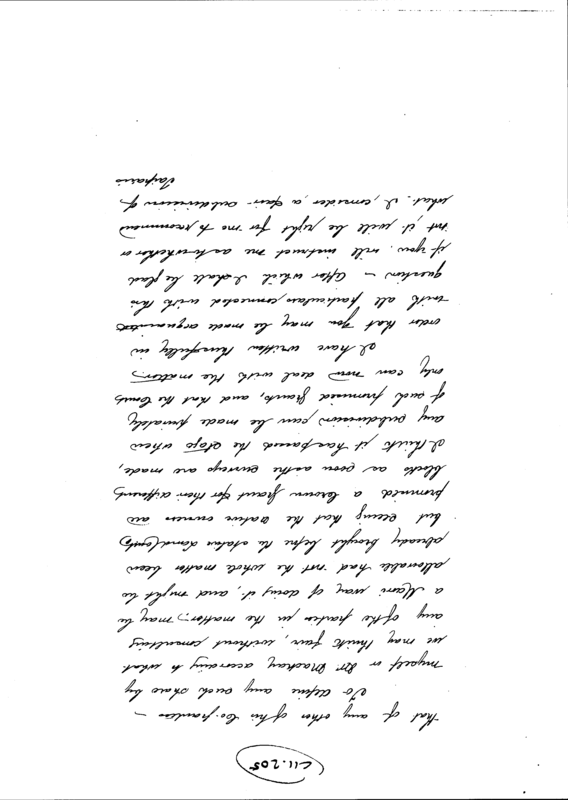 C11.205
that of any other of his Co-grantees —
To define any such share by
myself or Mr Mackay according to what
we may think fair, without consulting
any of the parties in the matter, may be
a Maori way of doing it, and might be
allowable had not the whole matter been
already brought before the Native Land Court,
but seeing that the Native owners are
promised a Crown Grant for their different
blocks as soon as the surveys are made,
I think it has passed the stage where
any subdivision can be made privately
of such promised grants, and that the Court
only can now deal with the matter.
I have written thus fully in
order that you may be made acquainted
with all particulars connected with this
question — After which I shall be glad
if you will instruct me as to whether or
not it will be right for me to recommend
what I consider a fair subdivision of
Taipari's